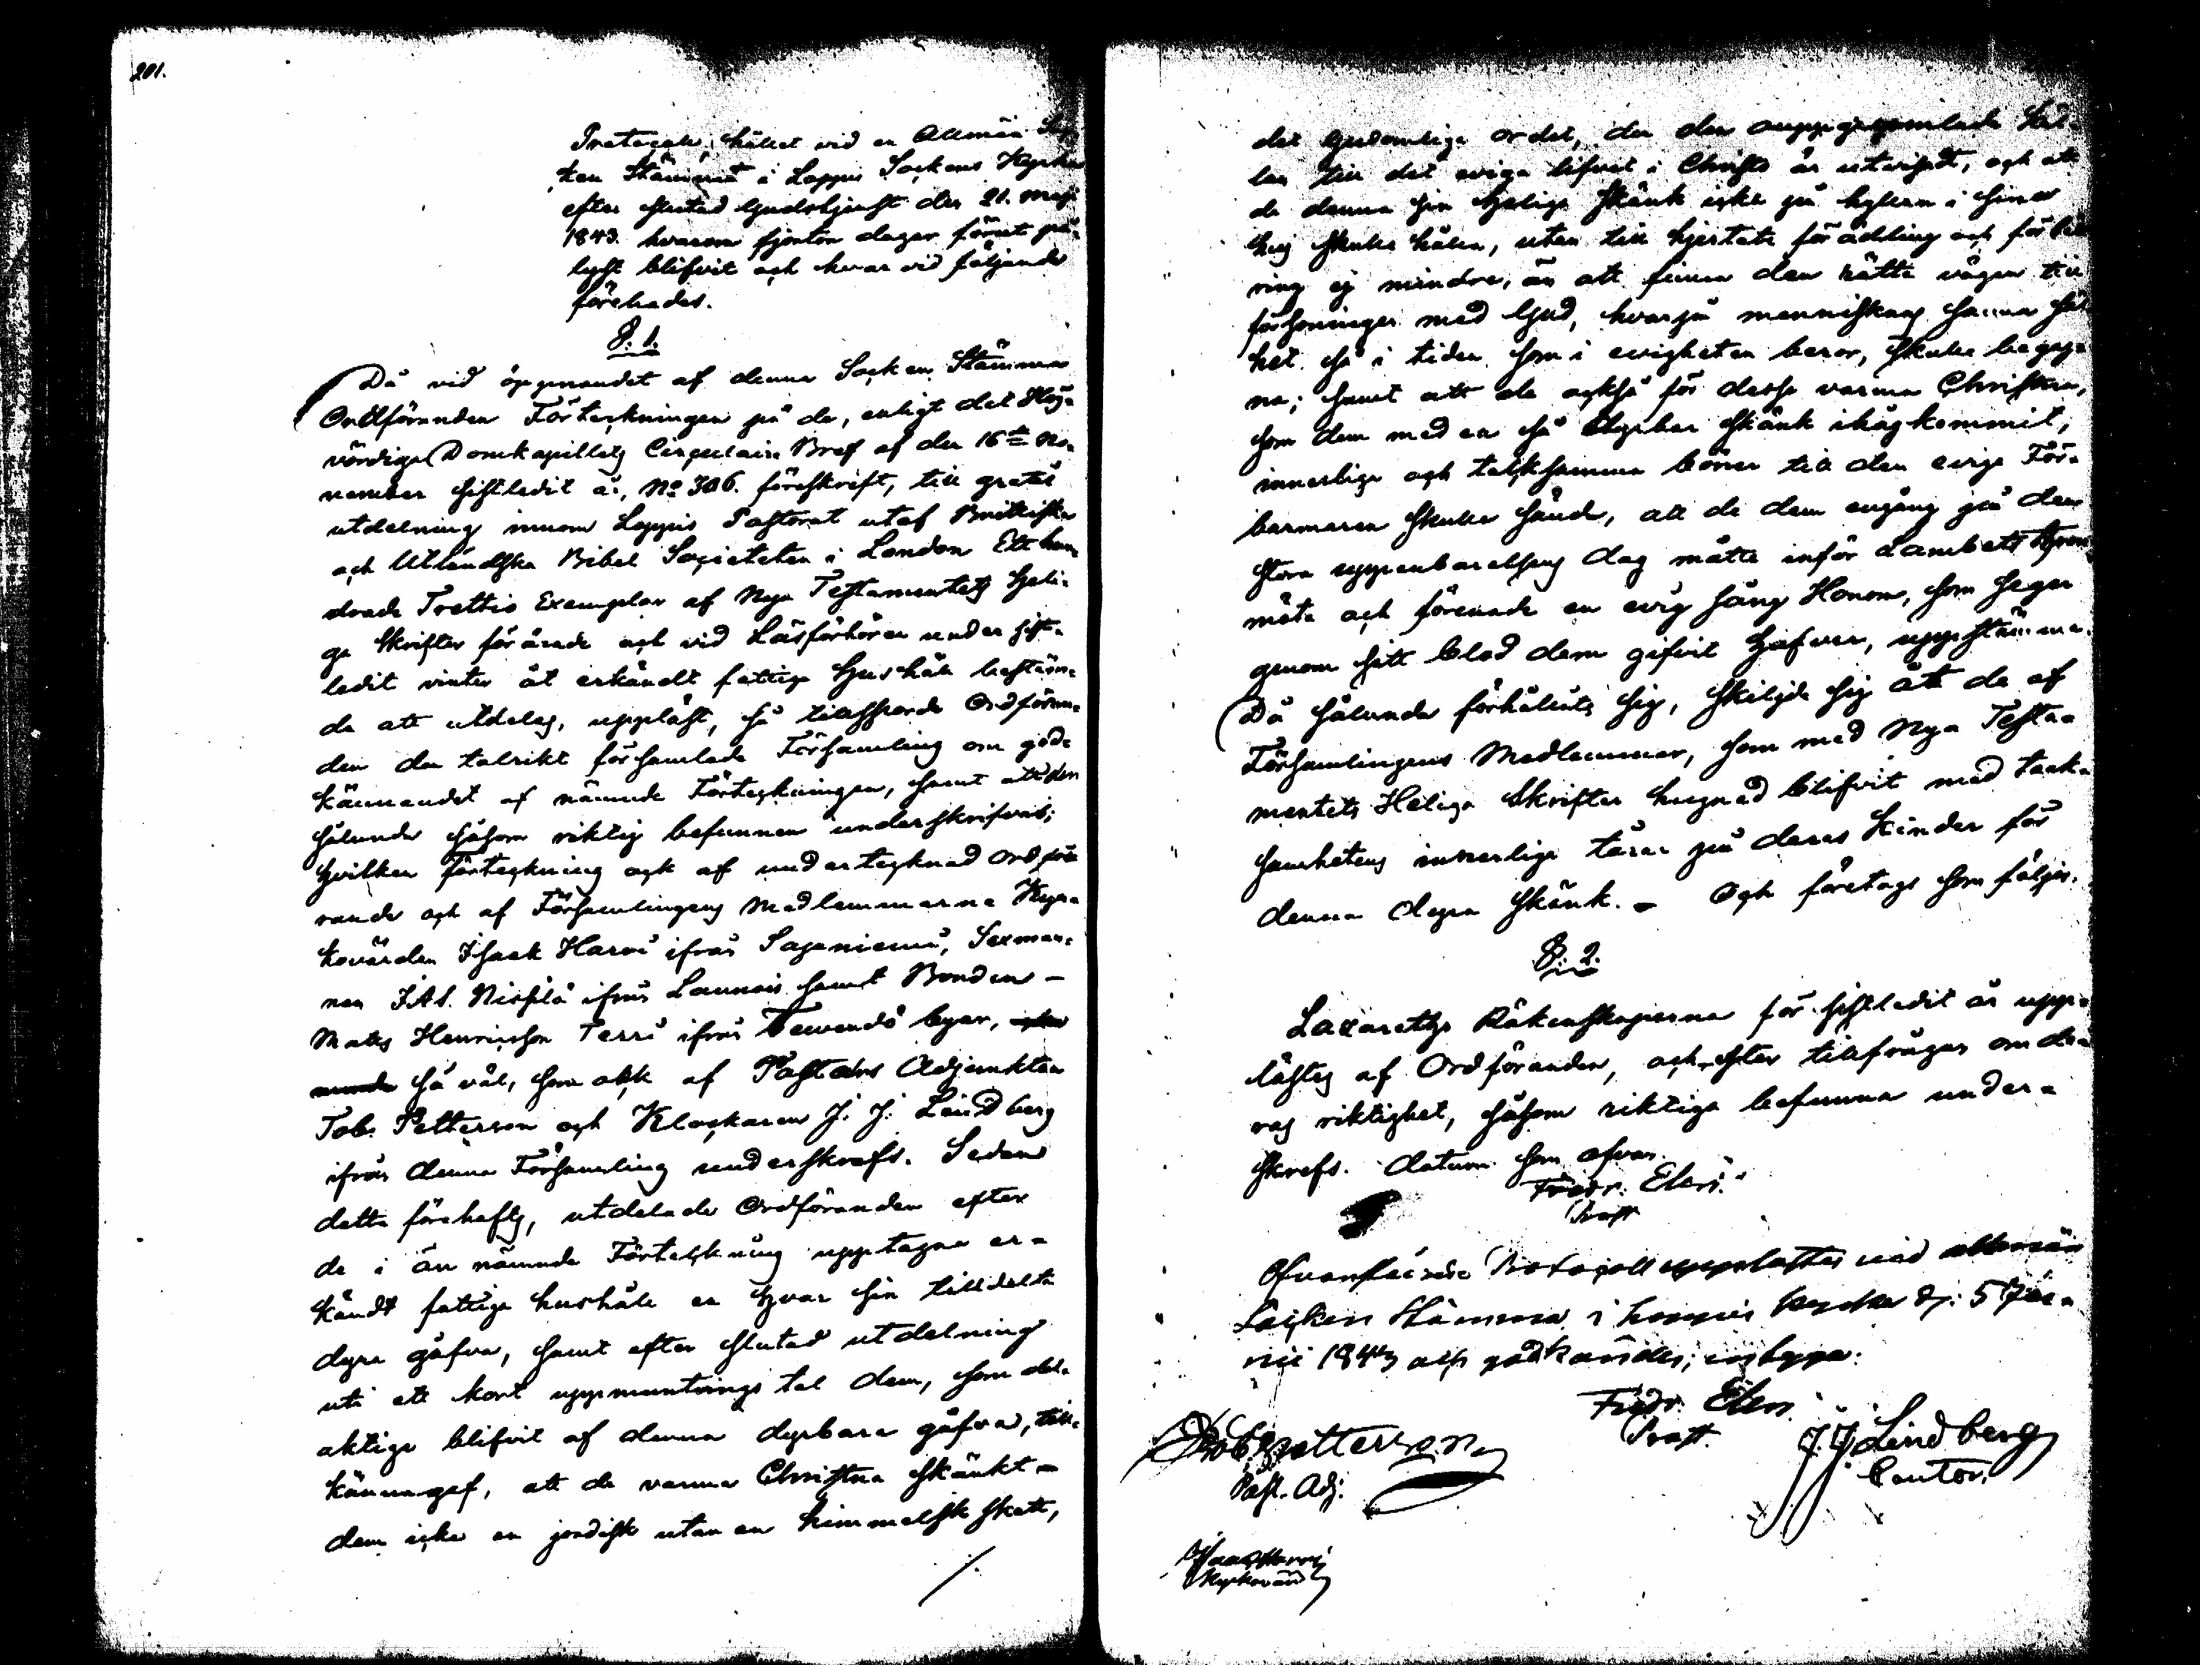 201.
Protocoll, hållet vid en Allmän Soc-
ken Stämma i Loppis Sockens Kyrka
efter slutad Gudstjenst den 21. Maji
1843. hvarom fjorton dagar förut på-
lyst blifvit och hvarvid följande
förehades.
§. 1.
Då vid öppnandet af denna Socken Stämma
Ordföranden Förteckningen på de, enligt det Hög-
vördiga Domkapitlets Circulaire Bref af den 16de No-
vember sistledit år, No 306. föreskrift, till gratis
utdelning innom Loppis Pastorat utaf Brittiska
och Utländska Bibel Societeten i London Ett hun-
drade Trettio Exemplar af Nya Testamentets Heli-
ga Skrifter förärade och vid Läsförhören under sist-
ledit vinter åt erkändt fattiga Hushåll bestäm-
da att utdelas, uppläst, så tillsporde Ordföran-
den den talrikt församlade Församling om god-
kännandet af nämnde Förteckningen, samt att den
sålunda såsom riktig befunnen underskrifvits;
hvilken Förteckning ock af undertecknad Ordfö-
rande och af Församlingens Medlemmarna Kyr-
kovärden Isaak Harvi ifrån Sajaniemi, Sexman-
nen J.A.S. Niffilä ifrån Launois samt Bonden
Mats Henricsson Terri ifrån Tewendö byar,
så väl, som ock af Pastors Adjunkten
Tob. Petterson och Klockaren J. J. Lindberg
ifrån denna Församling underskrefs. Sedan
detta förehafts, utdelade Ordföranden efter
de i än nämnde Förteckning upptagne er-
kändt fattiga hushåll en hvar sin tilldelta
dyra gåfva, samt efter slutad utdelning
uti ett kort uppmuntrings tal dem, som del-
aktige blifvit af denna dyrbara gåfva, till-
kännagaf, att de varma Christna skänkt
dem icke en jordisk utan en himmelsk skatt,
det Gudomliga ordet, der den ouppgrumlade käl-
lan till det eviga lifvet i Christo är utvisadt, och att
de denna sin Heliga Skänk icke på hyllan i sina
hus skulle hålla, utan till hjertats förädling och förbätt-
ring ej mindre, än att finna den rätta vägen till
försoningen med Gud, hvarpå menniskans sanna säll-
het så i tiden som i evigheten beror, skulle begag-
na; samt att de också för dessa varma Christna,
som dem med en så dyrbar skänk ihågkommit,
innerliga och tacksamma böner till den evige För-
barmaren skulle sända, att de dem engång på den
stora uppenbarelsens dag måtte inför Lambets thron
möta och förenade en evig sång Honom, som seger
genom sitt blod dem gifvit hafver, uppstämma.
Då sålunda förhållits sig, skiljde sig ått de af
Församlingens Medlemmar, som med Nya Testa-
mentets Heliga Skrifter hugnad blifvit med tack-
samhetens innerliga tårar på deras kinder för
denna dyra skänk. - Och företogs som följer.
§. 2.
Lazaretts Räkenskaperna för sistledit år upp-
lästes af Ordföranden, och efter tillfrågan om de-
ras riktighet, såsom riktiga befunna under-
skrefs. Datum som ofvan.
Fredr. Elers.
Prost
Ofvanstående Protocoll upplästes vid allmän
Socken Stämma i Loppis kyrka d. 5 Jun-
nii 1843 och godkändes; intyga:
Fredr. Elers.
Prost.
Tob. Petterson
Past. Adj.
J. J. Lindberg
Cantor.
Isaac Harvi
Kyrkovärd